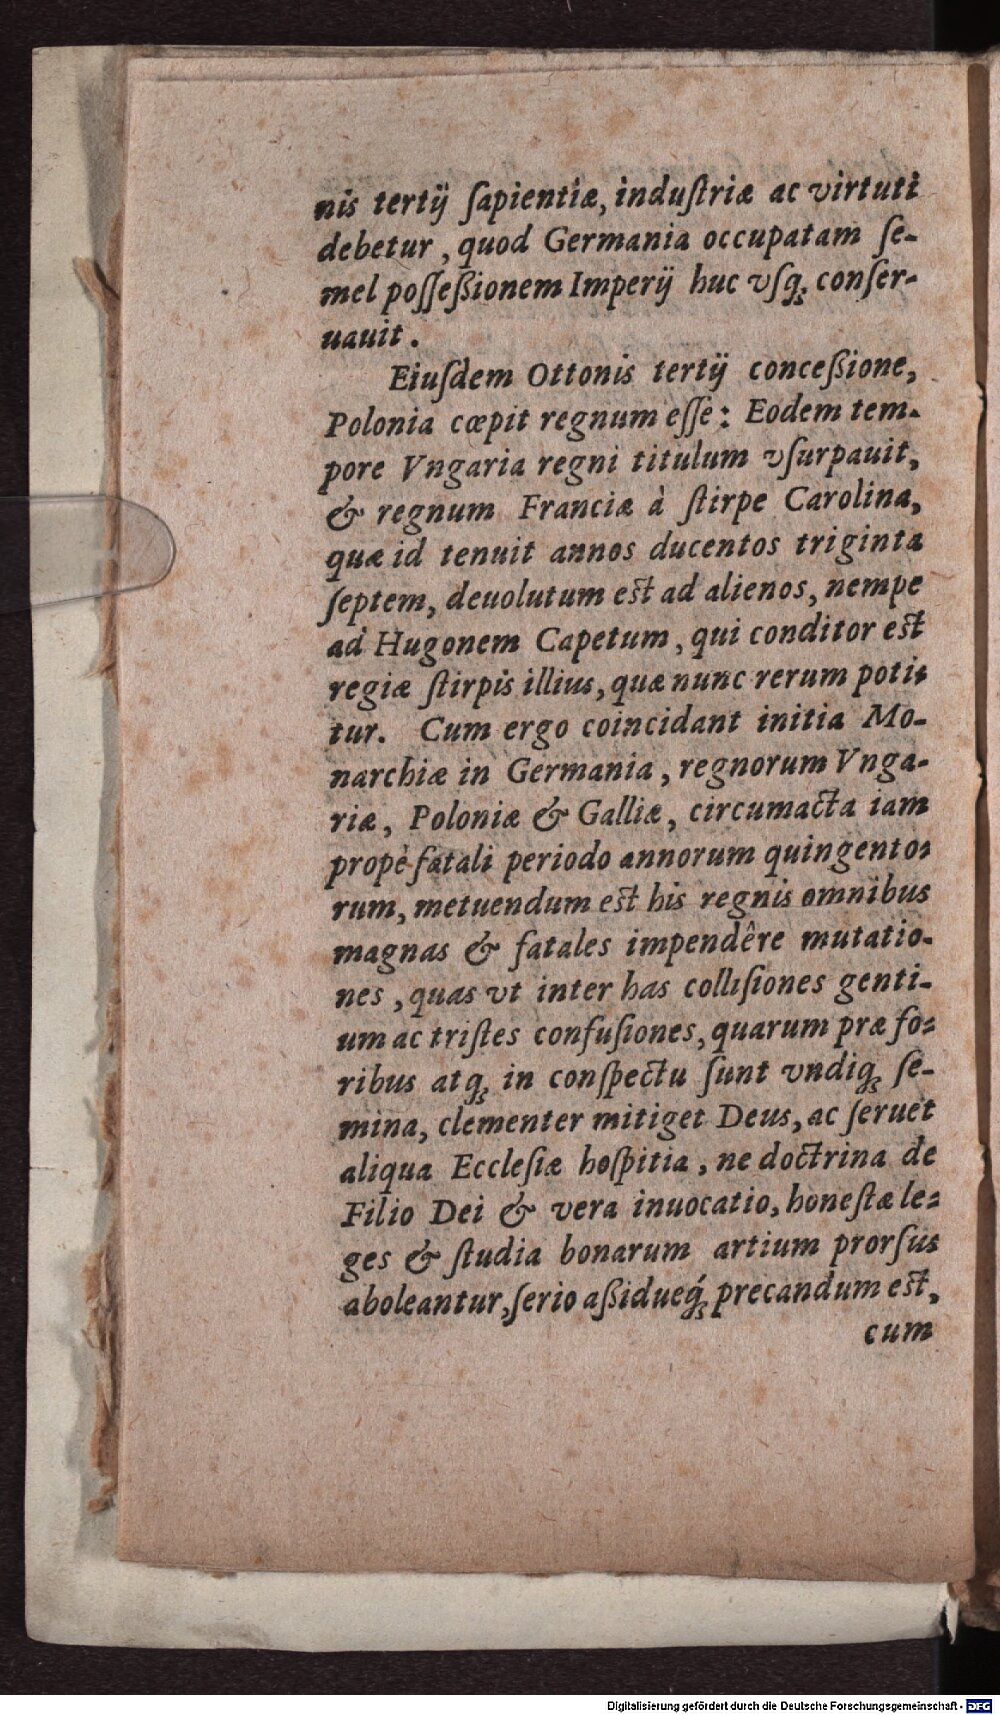 nis tertij ſapientiæ, induſtriæ ac virtuti
debetur, quod Germania occupatam ſe-
mel poſſeßionem Imperij huc vſq; conſer-
uauit.
Eiuſdem Ottonis tertij conceßione,
Polonia cœpit regnum eſſe: Eodem tem-
pore Vngaria regni titulum vſurpauit,
& regnum Franciæ à ſtirpe Carolina,
quæ id tenuit annos ducentos triginta
ſeptem, deuolutum eſt ad alienos, nempe
ad Hugonem Capetum, qui conditor eſt
regiæ ſtirpis illius, quæ nunc rerum poti-
tur. Cum ergo coincidant initia Mo-
narchiæ in Germania, regnorum Vnga-
riæ, Poloniæ & Galliæ, circumacta iam
propè fatali periodo annorum quingento-
rum, metuendum eſt his regnis omnibus
magnas & fatales impendêre mutatio-
nes, quas vt inter has colliſiones genti-
um ac triſtes confuſiones, quarum præ fo-
ribus atq; in conſpectu ſunt vndiq; ſe-
mina, clementer mitiget Deus, ac ſeruet
aliqua Eccleſiæ hoſpitia, ne doctrina de
Filio Dei & vera inuocatio, honeſtæ le-
ges & ſtudia bonarum artium prorſus
aboleantur, ſerio aßidueq́; precandum eſt,
cum
Digitalisierung gefördert durch die Deutsche Forschungsgemeinschaft - DFG